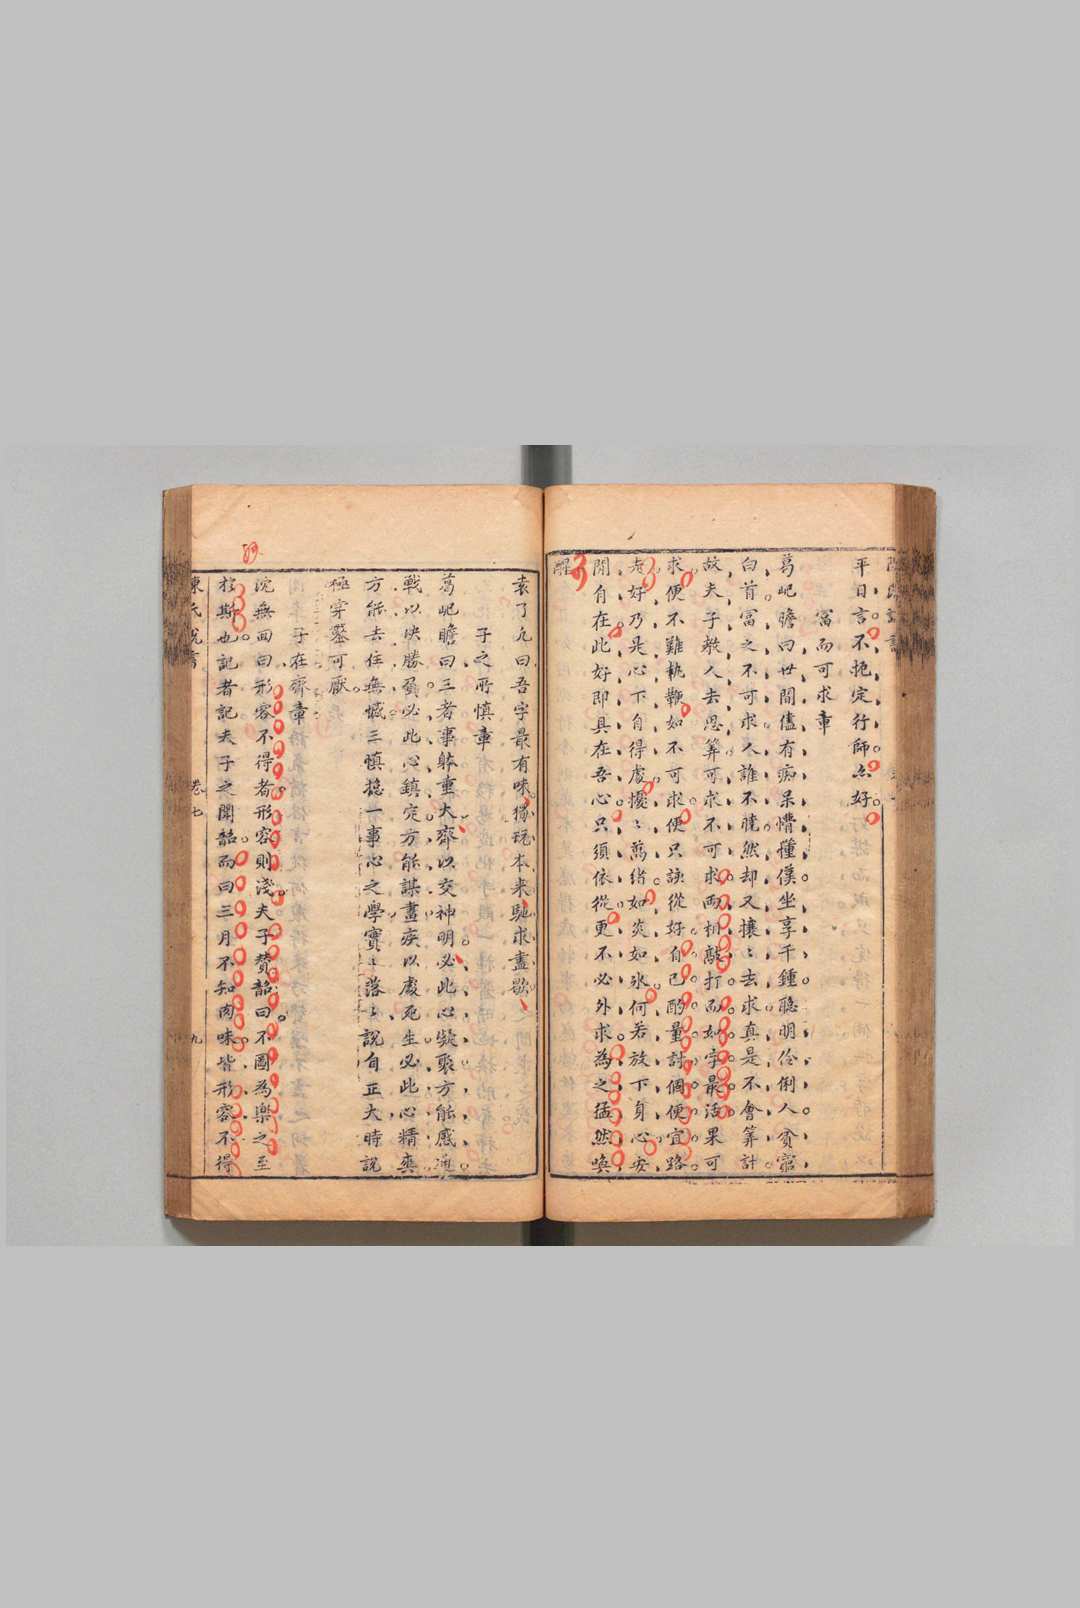 平日言不抱定行師亦好
富而可求章
葛屺瞻曰世間儘有痴呆懵懂僕坐享千鍾聰明伶俐人貧窮
白首富之不可求人誰不曉然却又攘〻去求真是不會筭計
故夫子教人去思筭可求不可求兩相敲打而如字最活果可
求便不難執鞭如不可求便只該從好自己酌量討個便宜路
夫好乃是心下自得處擾〻萬緒如炎如氷何若放下身心安
閒自在此好即具在吾心只須依從更不必外求為之猛然喚
醒
袁了凡曰吾字最有味獨玩本來馳求盡歇
子之所慎章
葛屺瞻曰三者事躰重大齋以交神明必此心凝聚方能感通
戰以决勝負必此心鎮定方能謀畫疾以處死生必此心精爽
方能去住無憾三慎摠一事心之學實〻落〻說自正大時說
極穿鑿可厭
子在齊章
沈無回曰形容不得者形容則淺夫子贊韶曰不圖為樂之至
於斯也記者記夫子之聞韶而曰三月不知肉味皆形容不得
陳氏說書
卷七
九